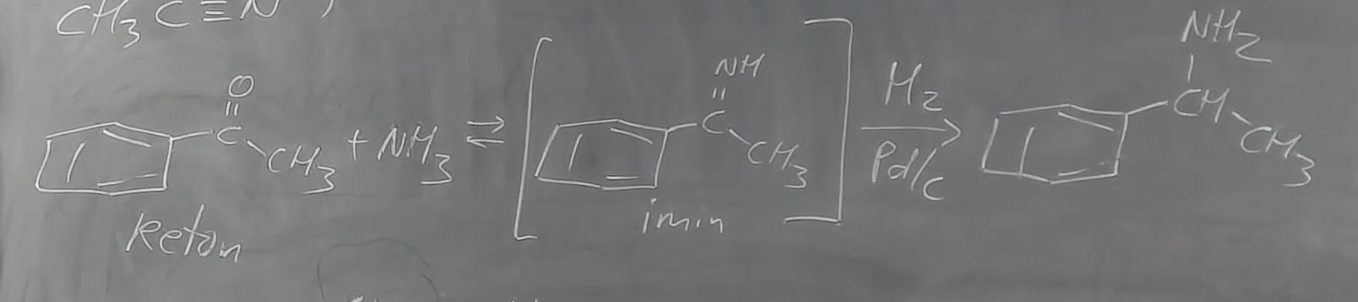 CH3 C≡N
O
||
C
CH3 + NH3 ⇌ [ NH
||
C
CH3 ] H2
Pd/C
NH2
|
CH
CH3
Keton
imin